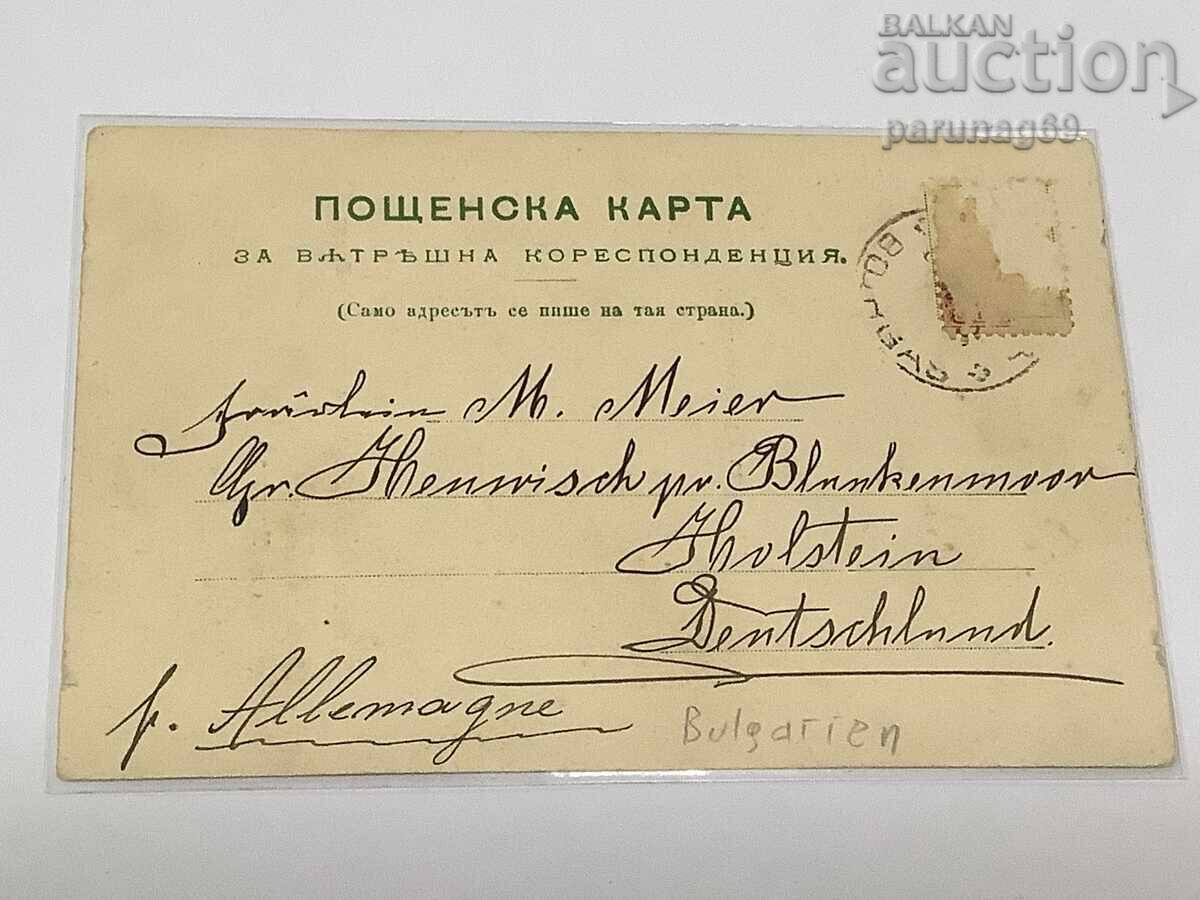 BALKAN
auction
parunag69
ПОЩЕНСКА КАРТА
ЗА ВѪТРѢШНА КОРЕСПОНДЕНЦИЯ.
(Само адресътъ се пише на тая страна.)
Fräulein M. Meier
Gr. Henwisch pr. Blankenmoor
Holstein
Deutschland.
p. Allemagne
Bulgarien